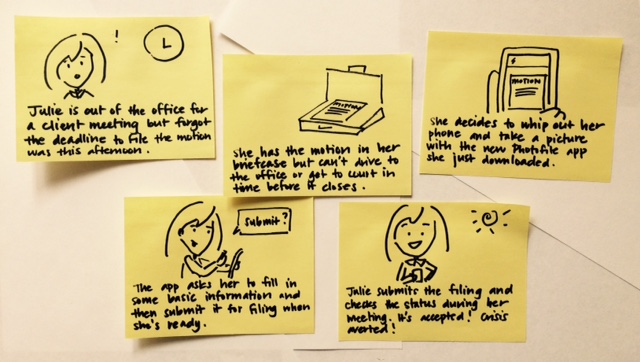 !
Julie is out of the office for
a client meeting but forgot
the deadline to file the motion
was this afternoon.
MOTION
She has the motion in her
briefcase but can't drive to
the office or get to court in
time before it closes.
MOTION
She decides to whip out her
phone and take a picture
with the new Photofile app
she just downloaded.
Submit?
The app asks her to fill in
some basic information and
then submit it for filing when
she's ready.
Julie submits the filing and
checks the status during her
meeting. It's accepted! Crisis
averted!